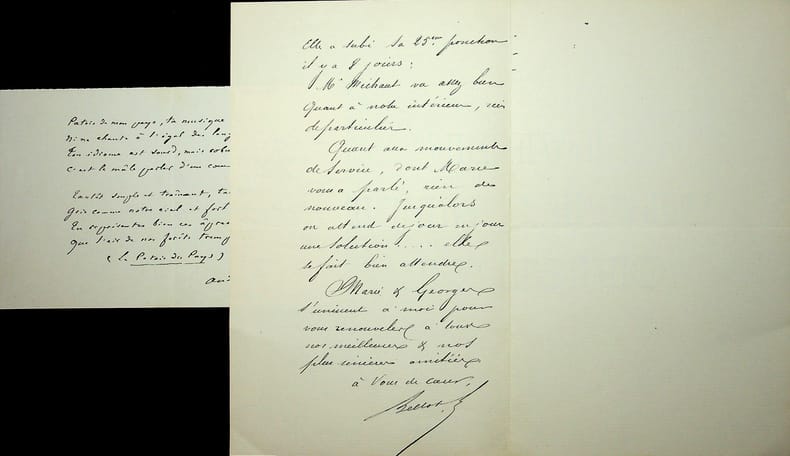 Patois de mon pays, ta musique
Ni ne chante à l'égal des
Ton idiome est sourd, mais
c'est le mâle parler d'un
Tantôt souple et traînant, ta
Gris comme notre ciel et
Tu représentes bien ces
Que l'air de nos forêts
(Le Patois du Pays)
Elle a subi sa 25me ponction
il y a 8 jours ;
Mr Michaut va assez bien
Quant à notre intérieur, rien
de particulier.
Quant aux mouvements
de service, dont Marie
vous a parlé, rien de
nouveau. Jusqu'alors
on attend de jour en jour
une solution..... elle
se fait bien attendre.
Marie & Georges
s'unissent à moi pour
vous renouveler à tous
nos meilleures & nos
plus sincères amitiés
à Vous de cœur,
Bellot